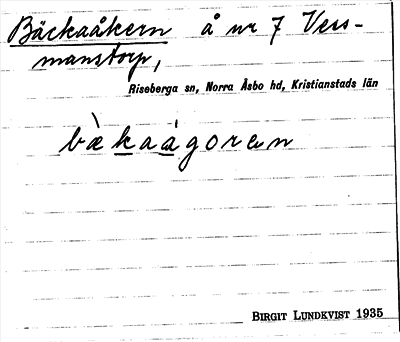 Bäckaåkern å nr 7 Vess-
manstorp,
Riseberga sn, Norra Åsbo hd, Kristianstads län
BIRGIT LUNDKVIST 1935